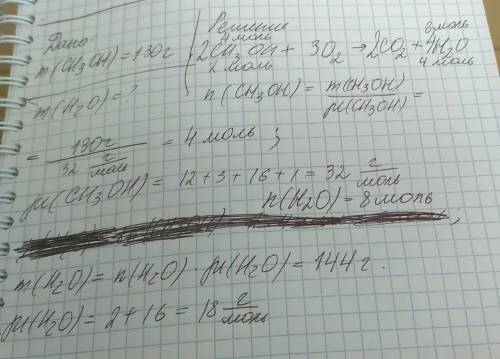 Дано
m(CH3OH)=130г
m(H2O)=?
Решение
4 моль 8 моль
2CH3OH + 3O2 → 2CO2 + 4H2O
2 моль 4 моль
n(CH3OH) = m(CH3OH) / μ(CH3OH) =
= 130г / 32 г/моль = 4 моль;
μ(CH3OH) = 12+3+16+1 = 32 г/моль
n(H2O) = 8 моль
m(H2O) = n(H2O) · μ(H2O) = 144 г.
μ(H2O) = 2+16 = 18 г/моль